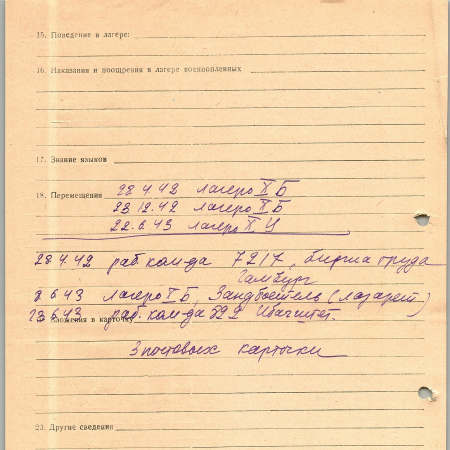 15. Поведение в лагере:
16. Наказания и поощрения в лагере военнопленных
17. Знание языков
18. Перемещения 28.4.42 лагерь X Б
23.12.42 лагерь X Б
22.6.43 лагерь X
28.4.42 раб. ком-да 7217, биржа труда
Гамбург
6.43 лагерь X Б, Зандбостель (лазарет)
6.43 раб. ком-да
Вложения в карточку
3 почтовых карточки
20. Другие сведения